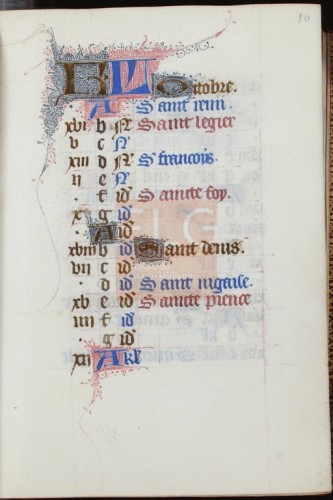 10
KL Octobre.
A Saint remi.
xvi b N Saint legier
v c N
xiii d N S. francois.
ii e N
. f N Saincte foy.
x g id
. A id
xviii b id Saint denis.
vii c id
. d id Saint nigaise.
xv e id Saincte pience
iiii f id
. g id
xii A kl